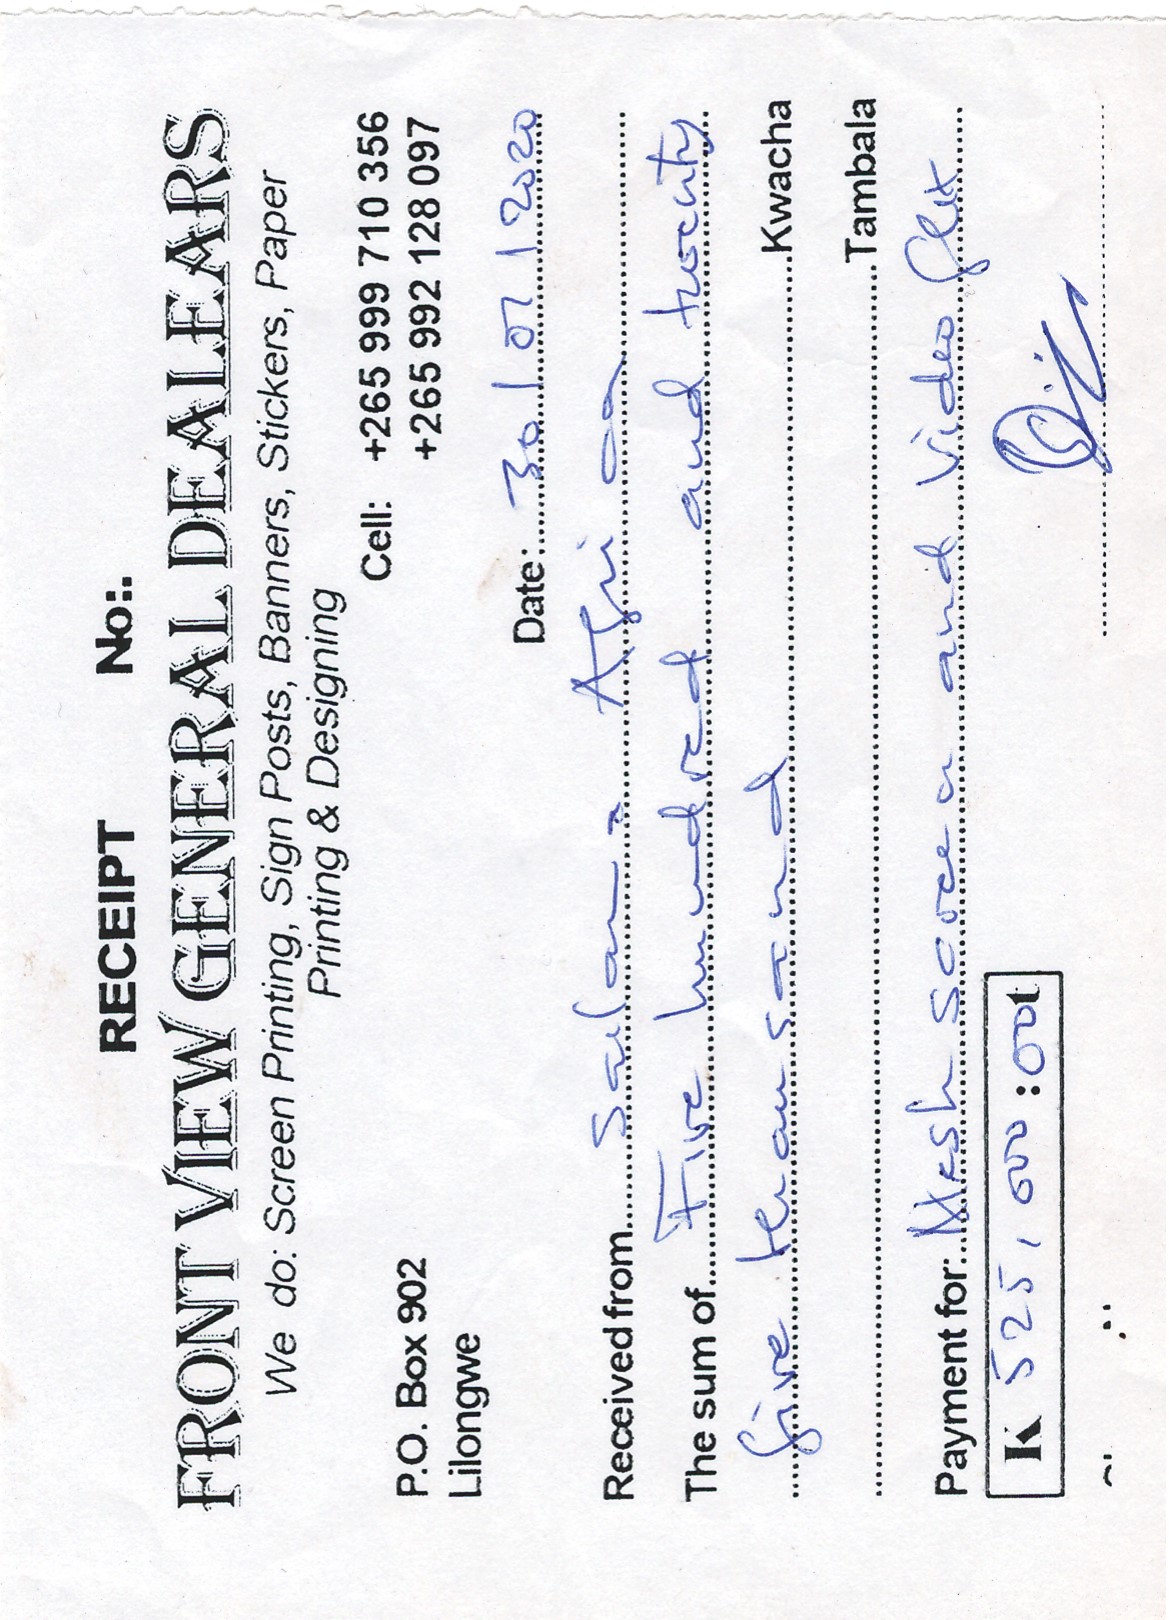 RECEIPT No:.
FRONT VIEW GENERAL DEALEARS
We do: Screen Printing, Sign Posts, Banners, Stickers, Paper
Printing & Designing
Cell: +265 999 710 356
+265 992 128 097
P.O. Box 902
Lilongwe
Date: 30/01/2020
Received from Salama Africa
The sum of Five hundred and twenty
five thousand Kwacha
Tambala
Payment for: Mesh screen and Video flex
K 525,000:00t